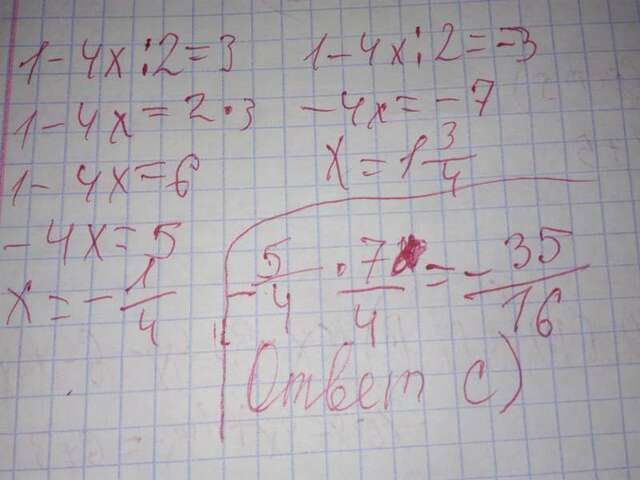 1-4x:2=3
1-4x=2·3
1-4x=6
-4x=5
x=-1/4
1-4x:2=-3
-4x=-7
x=1 3/4
-5/4 · 7/4 = -35/16
Ответ с)